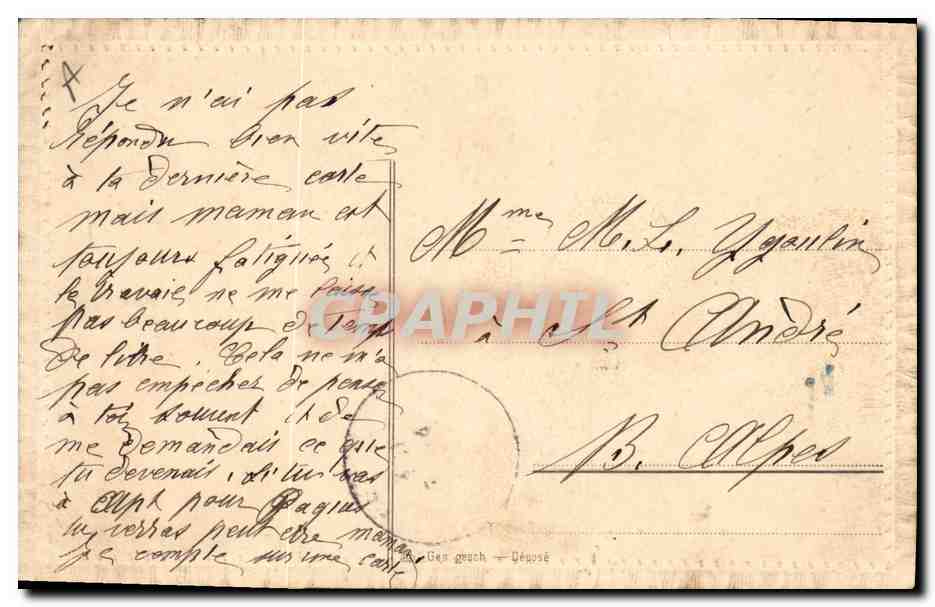 A
Je n'ai pas
répondu bien vite
à ta dernière carte
mais maman est
toujours fatiguée et
le travail ne me laisse
pas beaucoup de temps
de libre. Cela ne m'a
pas empêcher de penser
à toi souvent et de
me demandais ce que
tu devenais. Si tu vas
à Apt pour Paques
tu verras peut être maman.
Je compte sur une carte
Mme M. L. Ygoulin
à St André
B. Alpes
CPAPHIL
Ges. gesch. — Déposé